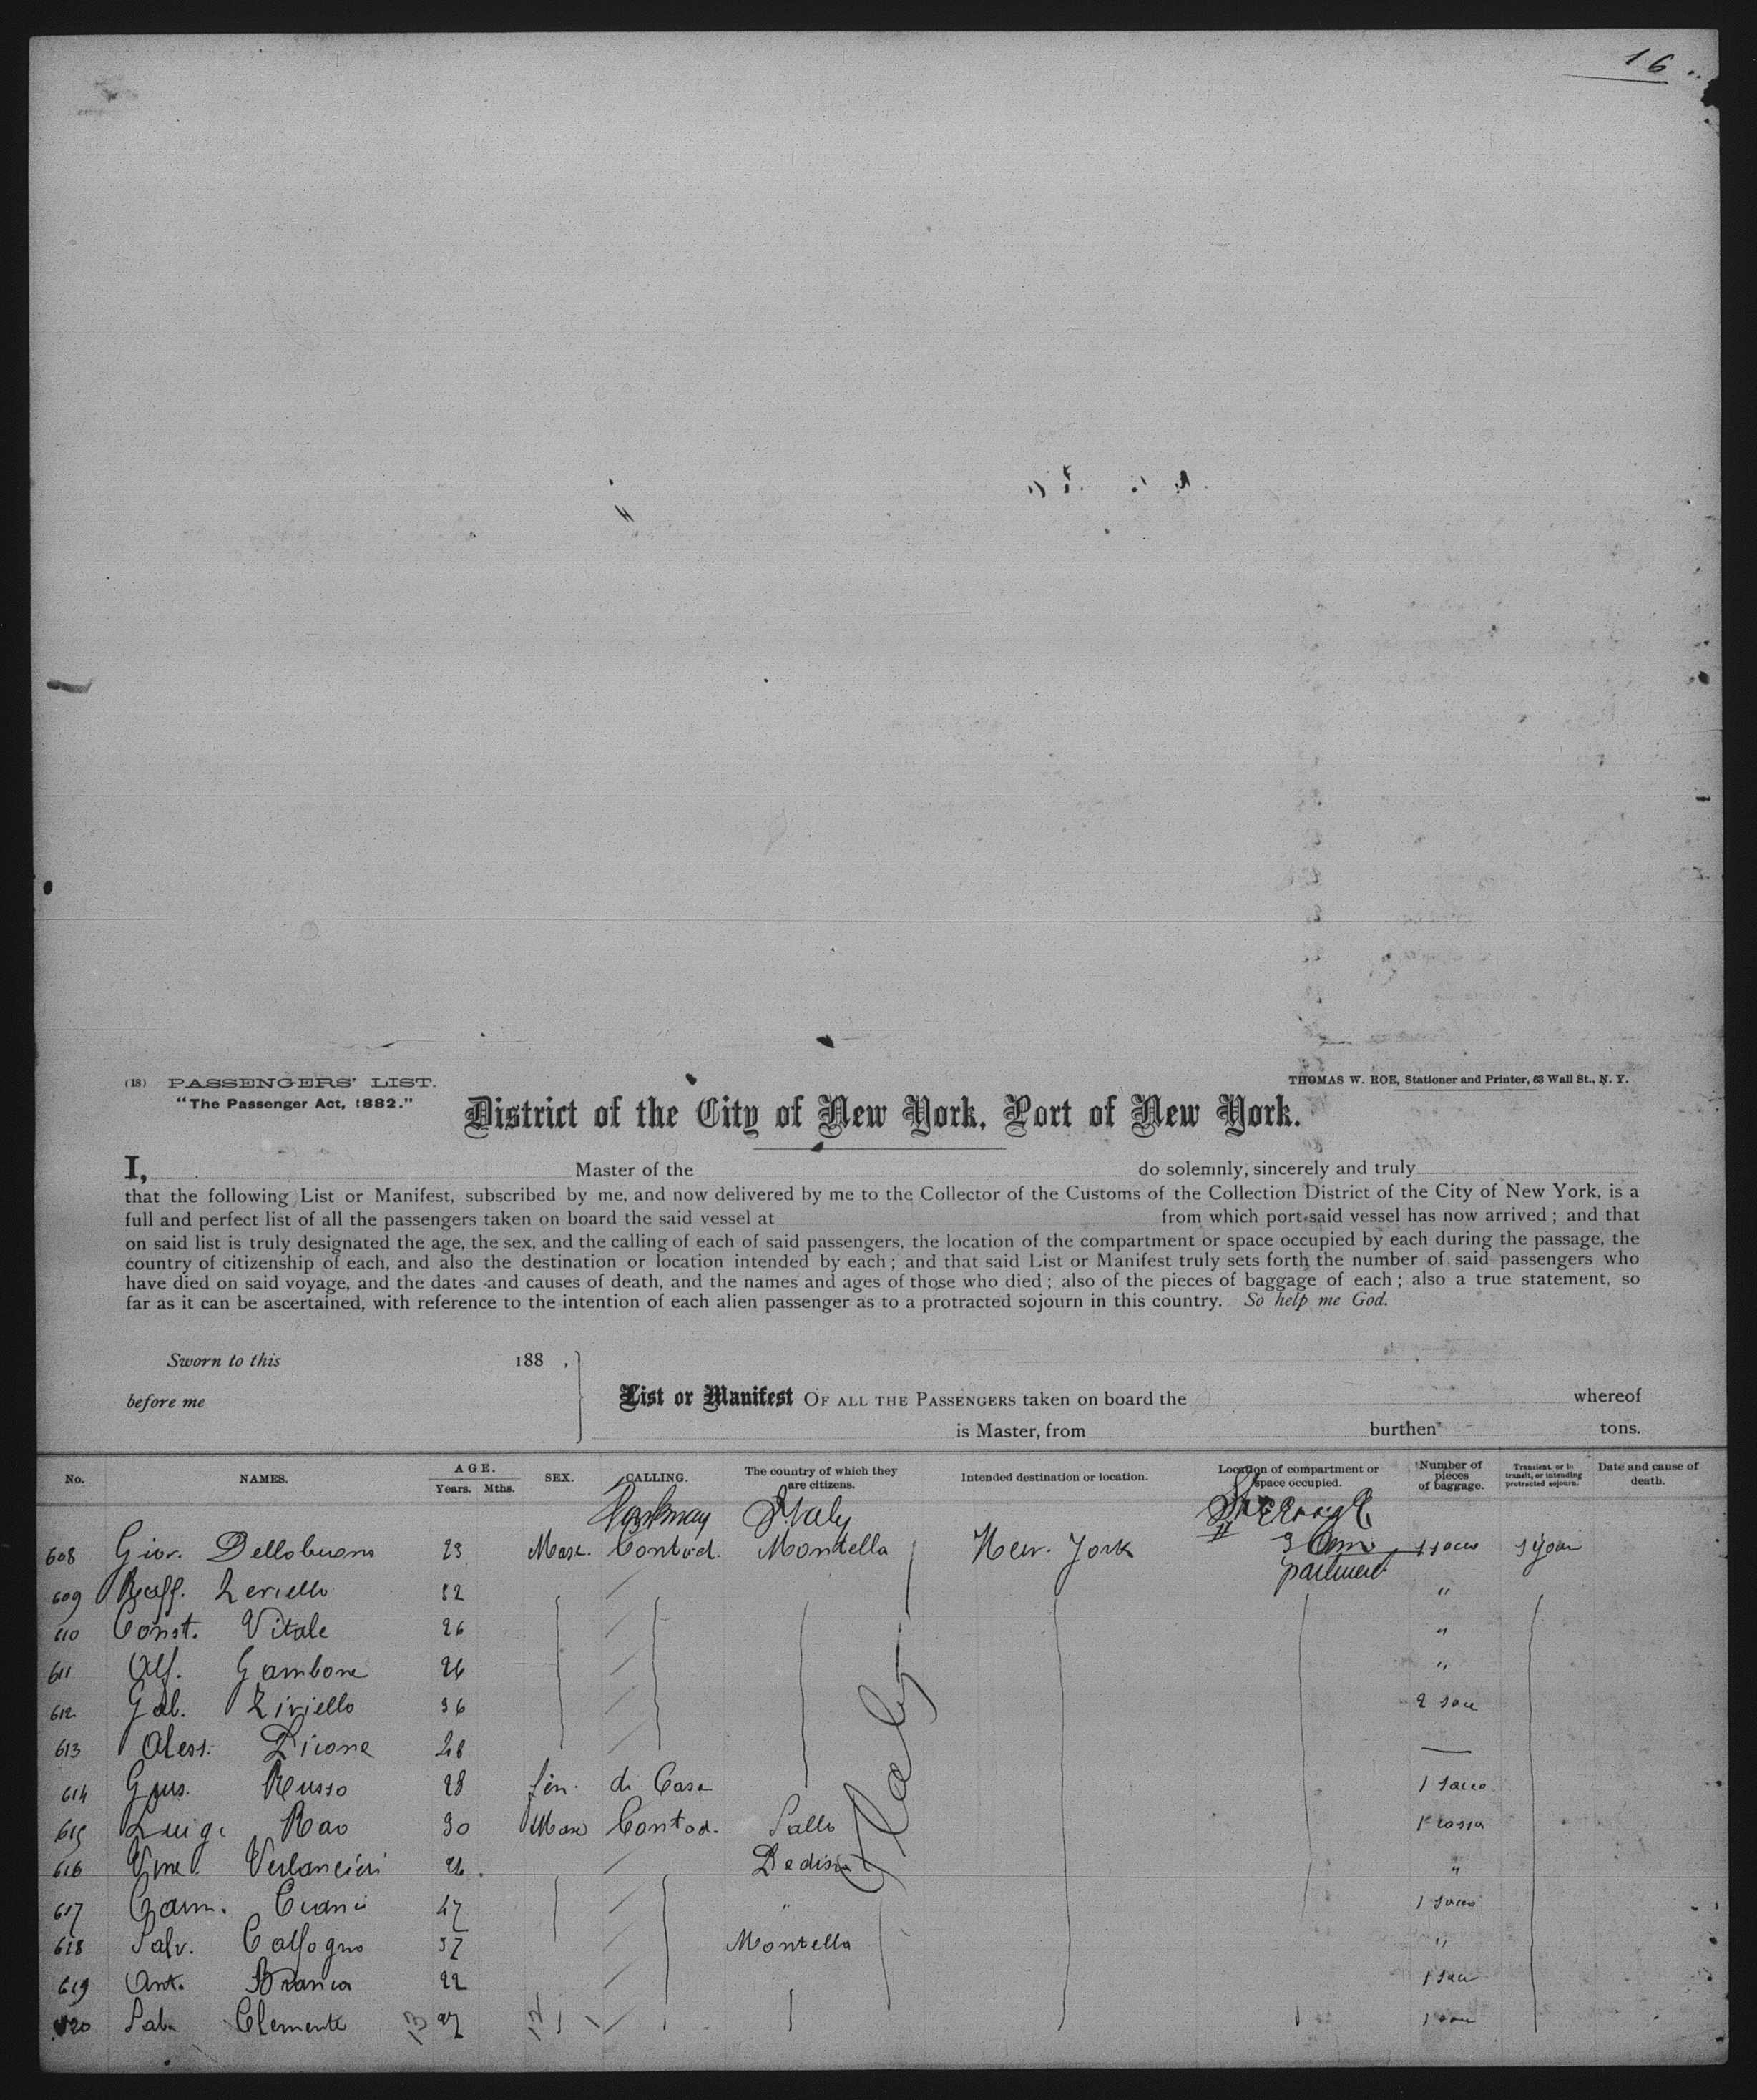 16
(18) PASSENGERS' LIST.
THOMAS W. ROE, Stationer and Printer, 63 Wall St., N. Y.
"The Passenger Act, 1882."
District of the City of New York, Port of New York.
I, Master of the do solemnly, sincerely and truly
that the following List or Manifest, subscribed by me, and now delivered by me to the Collector of the Customs of the Collection District of the City of New York, is a
full and perfect list of all the passengers taken on board the said vessel at from which port said vessel has now arrived; and that
on said list is truly designated the age, the sex, and the calling of each of said passengers, the location of the compartment or space occupied by each during the passage, the
country of citizenship of each, and also the destination or location intended by each; and that said List or Manifest truly sets forth the number of said passengers who
have died on said voyage, and the dates and causes of death, and the names and ages of those who died; also of the pieces of baggage of each; also a true statement, so
far as it can be ascertained, with reference to the intention of each alien passenger as to a protracted sojourn in this country. So help me God.
Sworn to this 188 ,
before me
List or Manifest OF ALL THE PASSENGERS taken on board the whereof
is Master, from burthen tons.
No. NAMES. AGE. Years. Mths. SEX. CALLING. The country of which they are citizens. Intended destination or location. Location of compartment or space occupied. Number of pieces of baggage. Transient, or in transit, or intending protracted sojourn. Date and cause of death.
Italy
608 Giov. Dellobuono 23 Masc. Contad. Montella New York 3 Com partment 1 sacco
609 Raff. 32 "
610 Const. Vitale 26 "
611 Alf. Gambone 26 "
612 Gab. Ziviello 36 2
613 Aless. 28 —
614 Gius. Russo 28 fem. di Casa 1 sacco
615 Luigi Rao 30 Masc Contad. 1 cassa
616 26 "
617 Carm. Ciani 47 " 1 sacco
618 Salv. 37 Montella "
619 Ant. Branca 22 1
620 Sab. Clemente 13 27 12 1
Italy